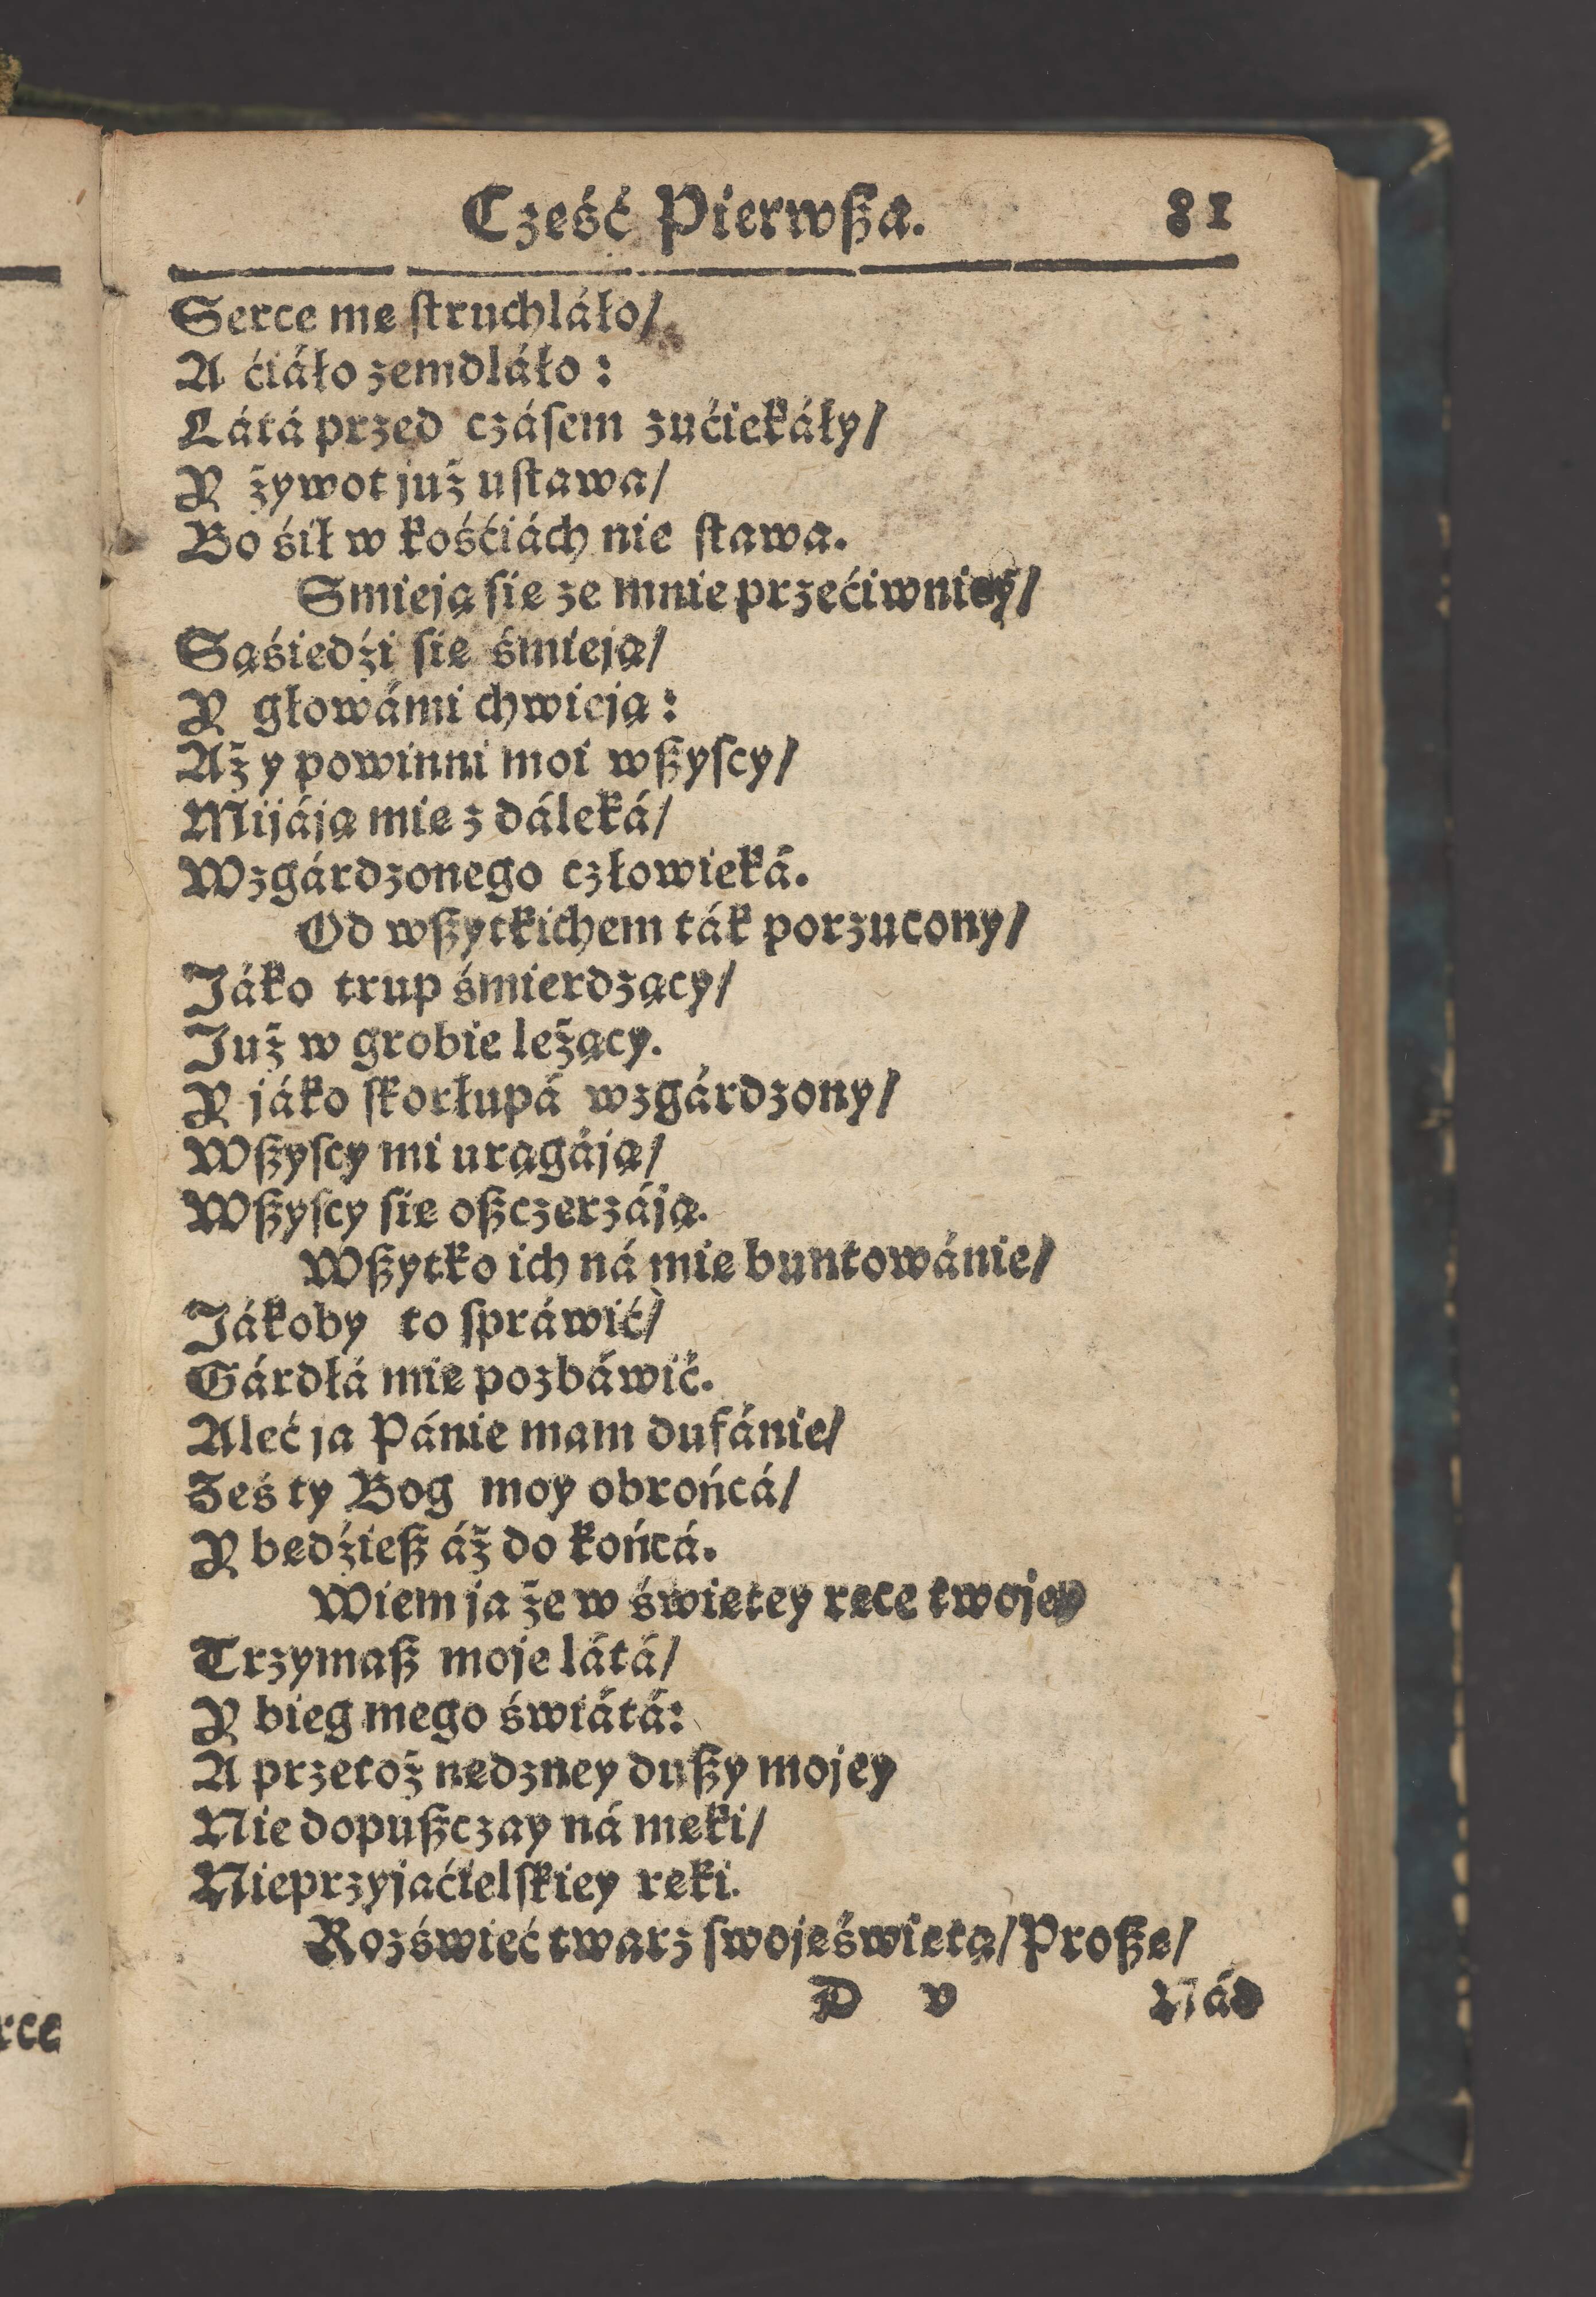 Cżęść Pierwſza. 81
Serce me ſtruchláło/
A ćiáło zemdláło:
Látá przed czáſem zućiekáły/
Y żywot już uſtawa/
Bo śił w kośćiách nie ſtawa.
Smieją ſię ze mnie przećiwnicy/
Sąśiedźi ſię śmieją/
Y głowámi chwieją:
Aż y powinni moi wſzyſcy/
Mijáją mię z dáleká/
Wzgárdzonego człowieká.
Od wſzytkichem ták porzucony/
Jáko trup śmierdzący/
Już w grobie leżący.
Y jáko ſkorłupá wzgárdzony/
Wſzyſcy mi urągáją/
Wſzyſcy ſię oſzczerzáją.
Wſzytko ich ná mię buntowánie/
Jákoby to ſpráwić/
Gárdłá mię pozbáwić.
Aleć ja Pánie mam dufánie/
Żeś ty Bog moy obrońcá/
Y będźieſz áż do końcá.
Wiem ja że w świętey ręce twojey
Trzymaſz moje látá/
Y bieg mego świátá:
A przetoż nędzney duſzy mojey
Nie dopuſzczay ná męki/
Nieprzyjaćielſkiey ręki.
Rozświeć twarz ſwoję świętą/ Proſzę/
D v Nád
rce